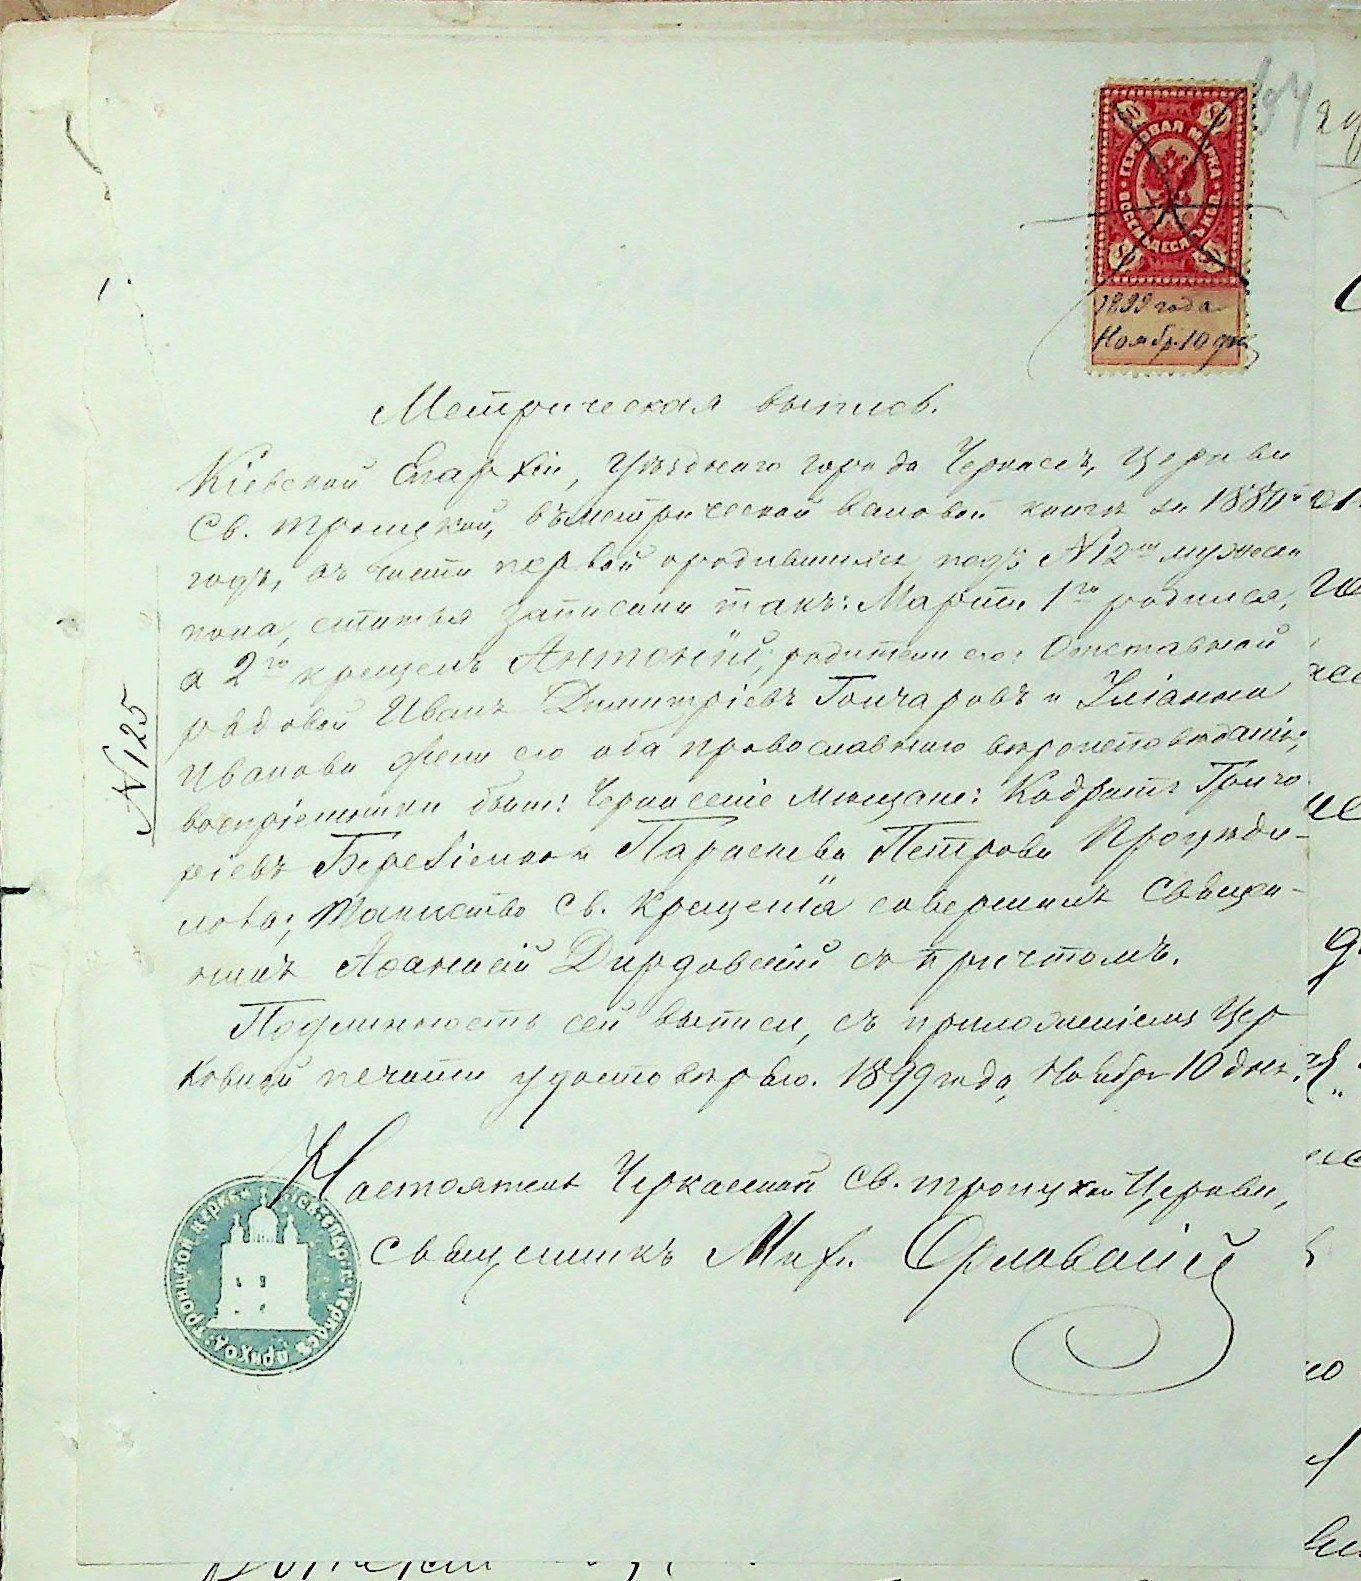 ГЕРБОВАЯ МАРКА
ВОСЕМЬДЕСЯТЪ КОП.
80 80
80 80
1899 года
Ноябр. 10 дня
Метрическая выпись.
Кіевской Епархіи, уѣзднаго города Черкасъ, церкви
Св. Троицкой, въ метрической книгѣ за 1880й
годъ, въ части первой о родившихся подъ №12мъ мужеска
пола, статья записана такъ: Марта 1го родился,
а 2го крещенъ Антоній; родители его: Отставной
рядовой Иванъ Димитріевъ Гончаровъ и Уліанна
Иванова жена его оба православнаго вѣроисповѣданія;
воспріемники были: Черкасскіе мѣщане: Кодратъ Григо
ріевъ и Параскева Петрова
Таинство Св. Крещенія совершилъ Священ-
никъ Аѳанасій Дирдовскій съ причтомъ.
Подлинность сей выписи, съ приложеніемъ Цер
ковной печати удостовѣряю. 1899 года, Ноября 10 дня.
№125
Настоятель Черкасской Св. Троицкой Церкви,
Священникъ Мих. Орловскій